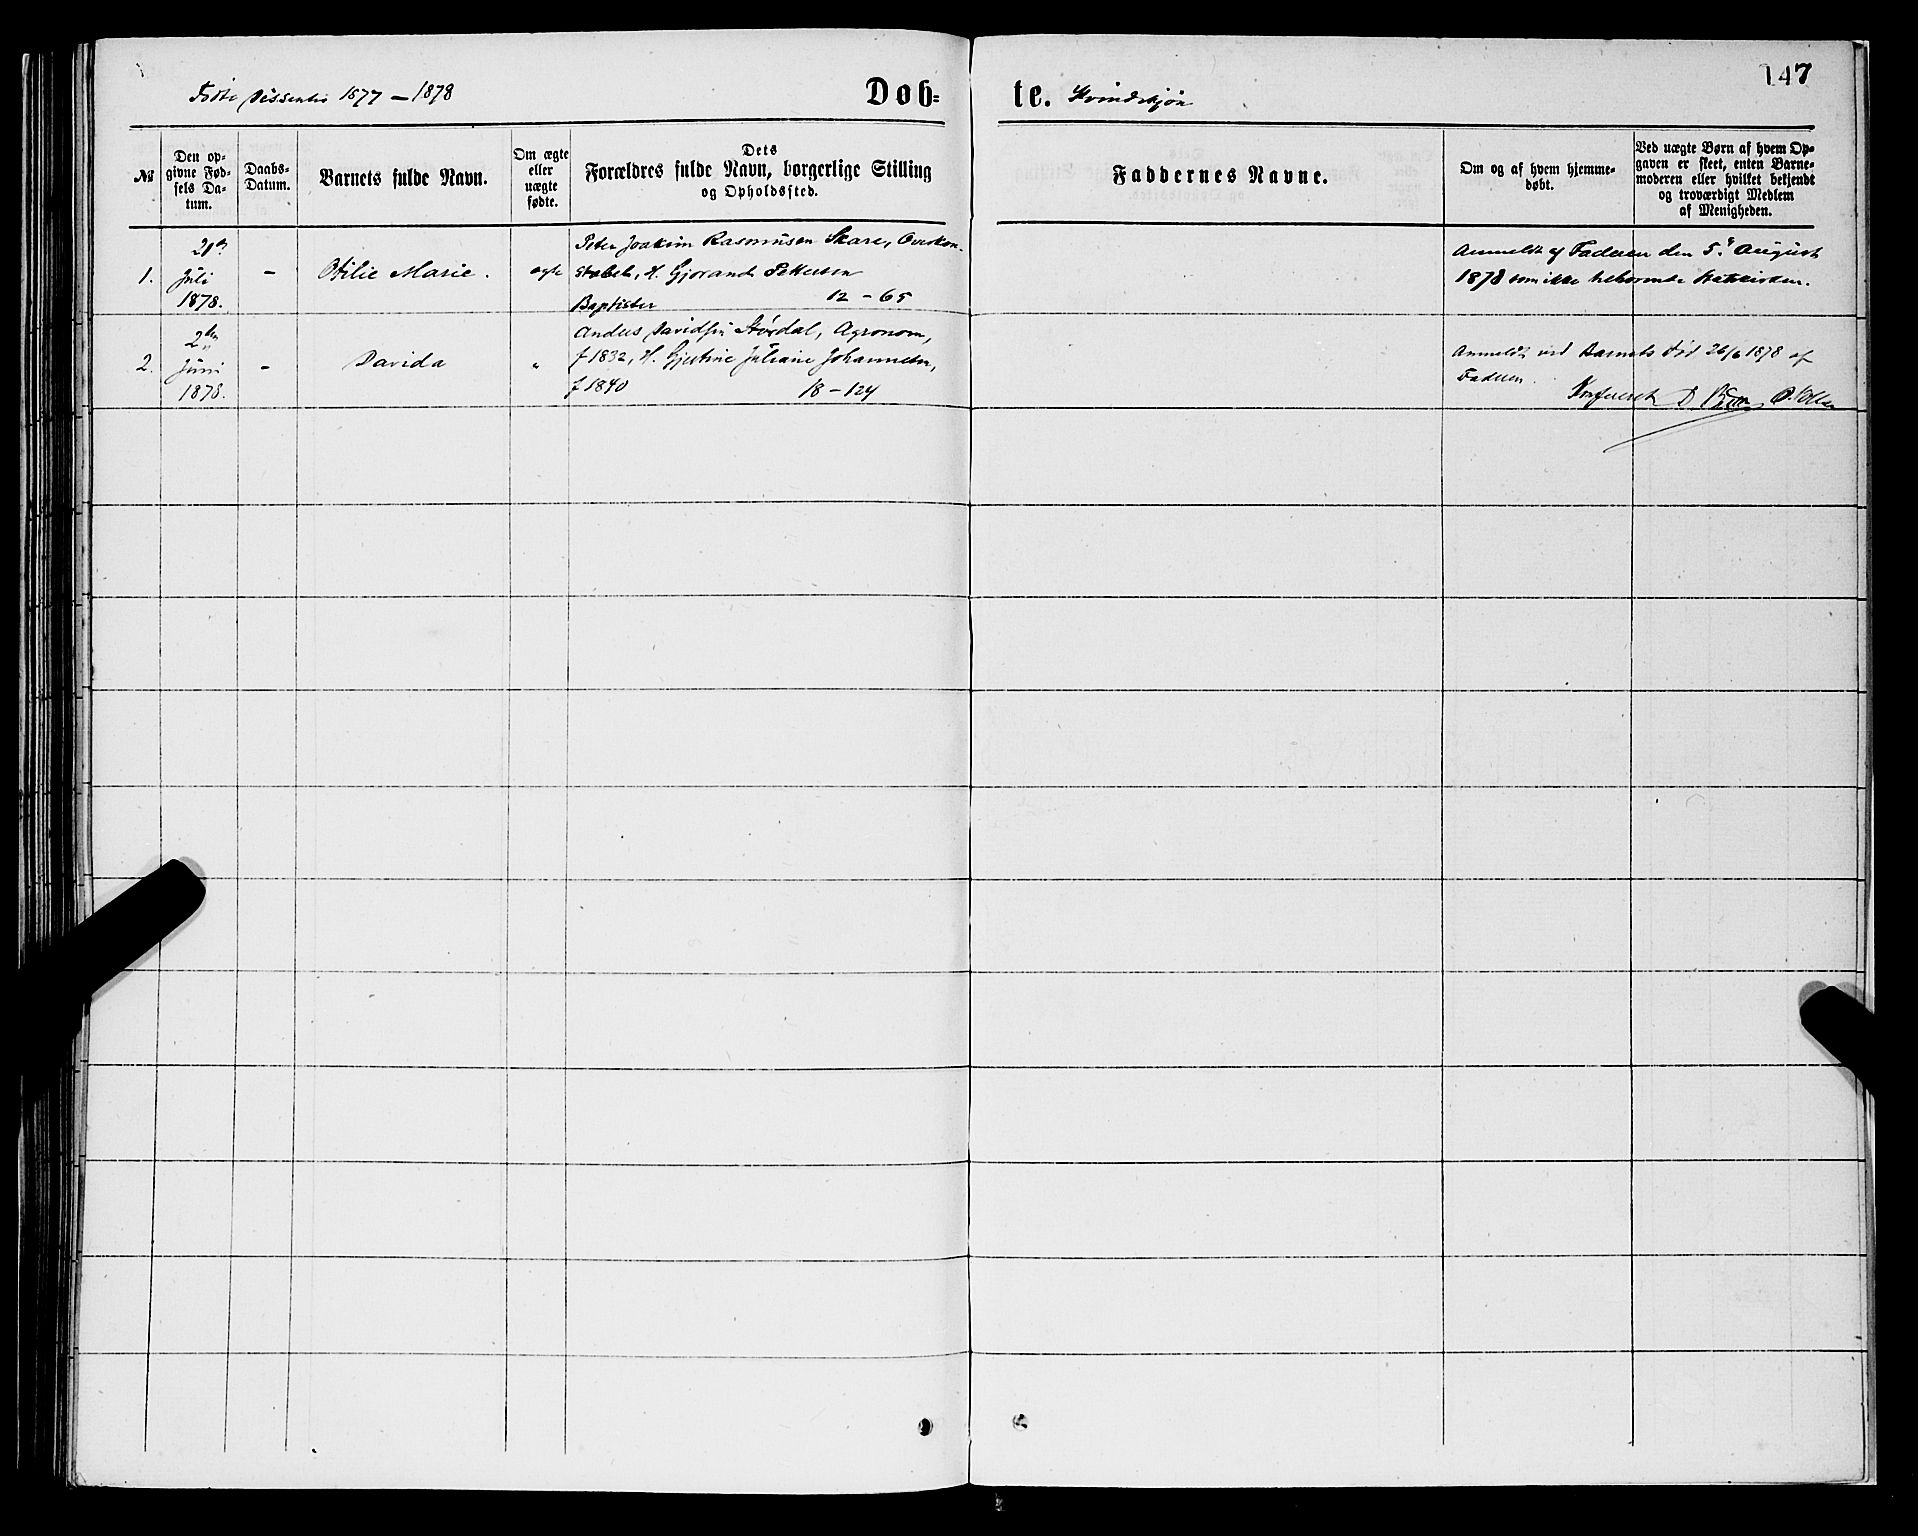 147
Fødte Dissentere 1877 – 1878
Døb=
te. Kvindekjøn
№
Den op-
givne Fød-
sels Da-
tum.
Daabs-
Datum.
Barnets fulde Navn.
Om ægte
eller
uægte
fødte.
Dets
Forældres fulde Navn, borgerlige Stilling
og Opholdssted.
Faddernes Navne.
Om og af hvem hjemme-
døbt.
Ved uægte Børn af hvem Op-
gaven er skeet, enten Barne-
moderen eller hvilket bekjendt
og troværdigt Medlem
af Menigheden.
1.
Juli
1878.
–
Otilie Marie.
ægte
Peter Joakim Rasmusen Skare, Overkon-
stabel, H. Gjorande Pettersen
Baptister 12 – 65
Anmeldt af Faderen den 5. August
1878 som ikke
2.
2den
Juni
1878.
–
Davida
"
Anders Størdal, Agronom,
f 1832, H. Gjertine Juliane Johannesen,
f 1840 18 – 124
Anmeldt ved Barnets Død 26/6 1878 af
Faderen.
Konfereret